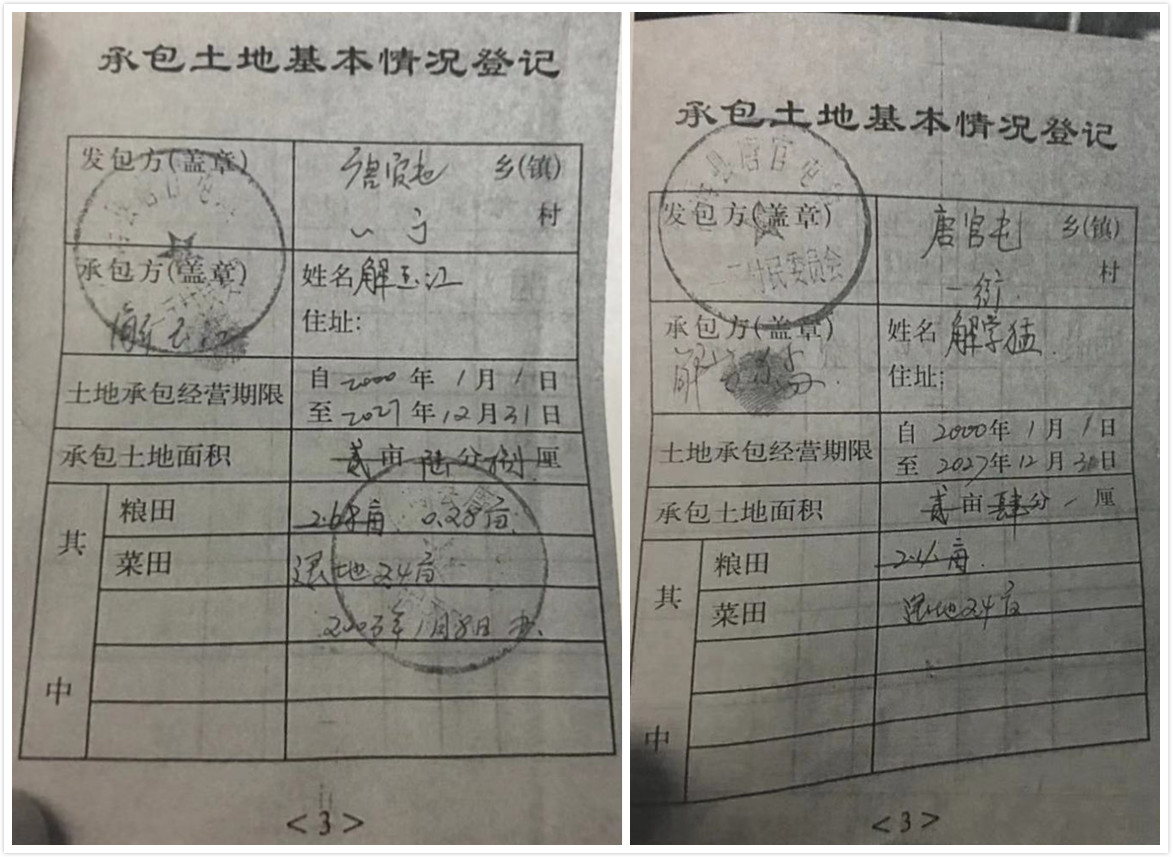 承包土地基本情况登记
发包方(盖章)
唐官屯 乡(镇)
村
承包方(盖章)
姓名 解玉江
解玉江
住址:
土地承包经营期限
自 2000 年 1 月 1 日
至 2027 年 12 月 31 日
承包土地面积
贰 亩 陆 分 捌 厘
其
中
粮田
2.68亩 0.28亩
菜田
退地2.4亩
2003年1月8日
<3>
承包土地基本情况登记
县唐官屯
发包方(盖章)
二村民委员会
唐官屯 乡(镇)
一街 村
承包方(盖章)
姓名 解学猛
住址:
土地承包经营期限
自 2000 年 1 月 1 日
至 2027 年 12 月 31 日
承包土地面积
贰 亩 肆 分 厘
其
中
粮田
菜田
退地2.4亩
<3>